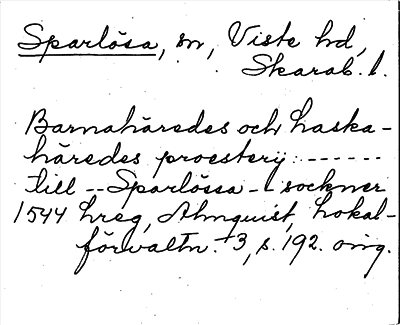 Sparlösa, sn, Viste hd,
Skarab. l.
Barnahäredes och Laska-
häredes proesterij: ------
till -- Sparlössa - l sockner
1544 hreg, Almquist, Lokal-
förvaltn. 3, s. 192. orig.